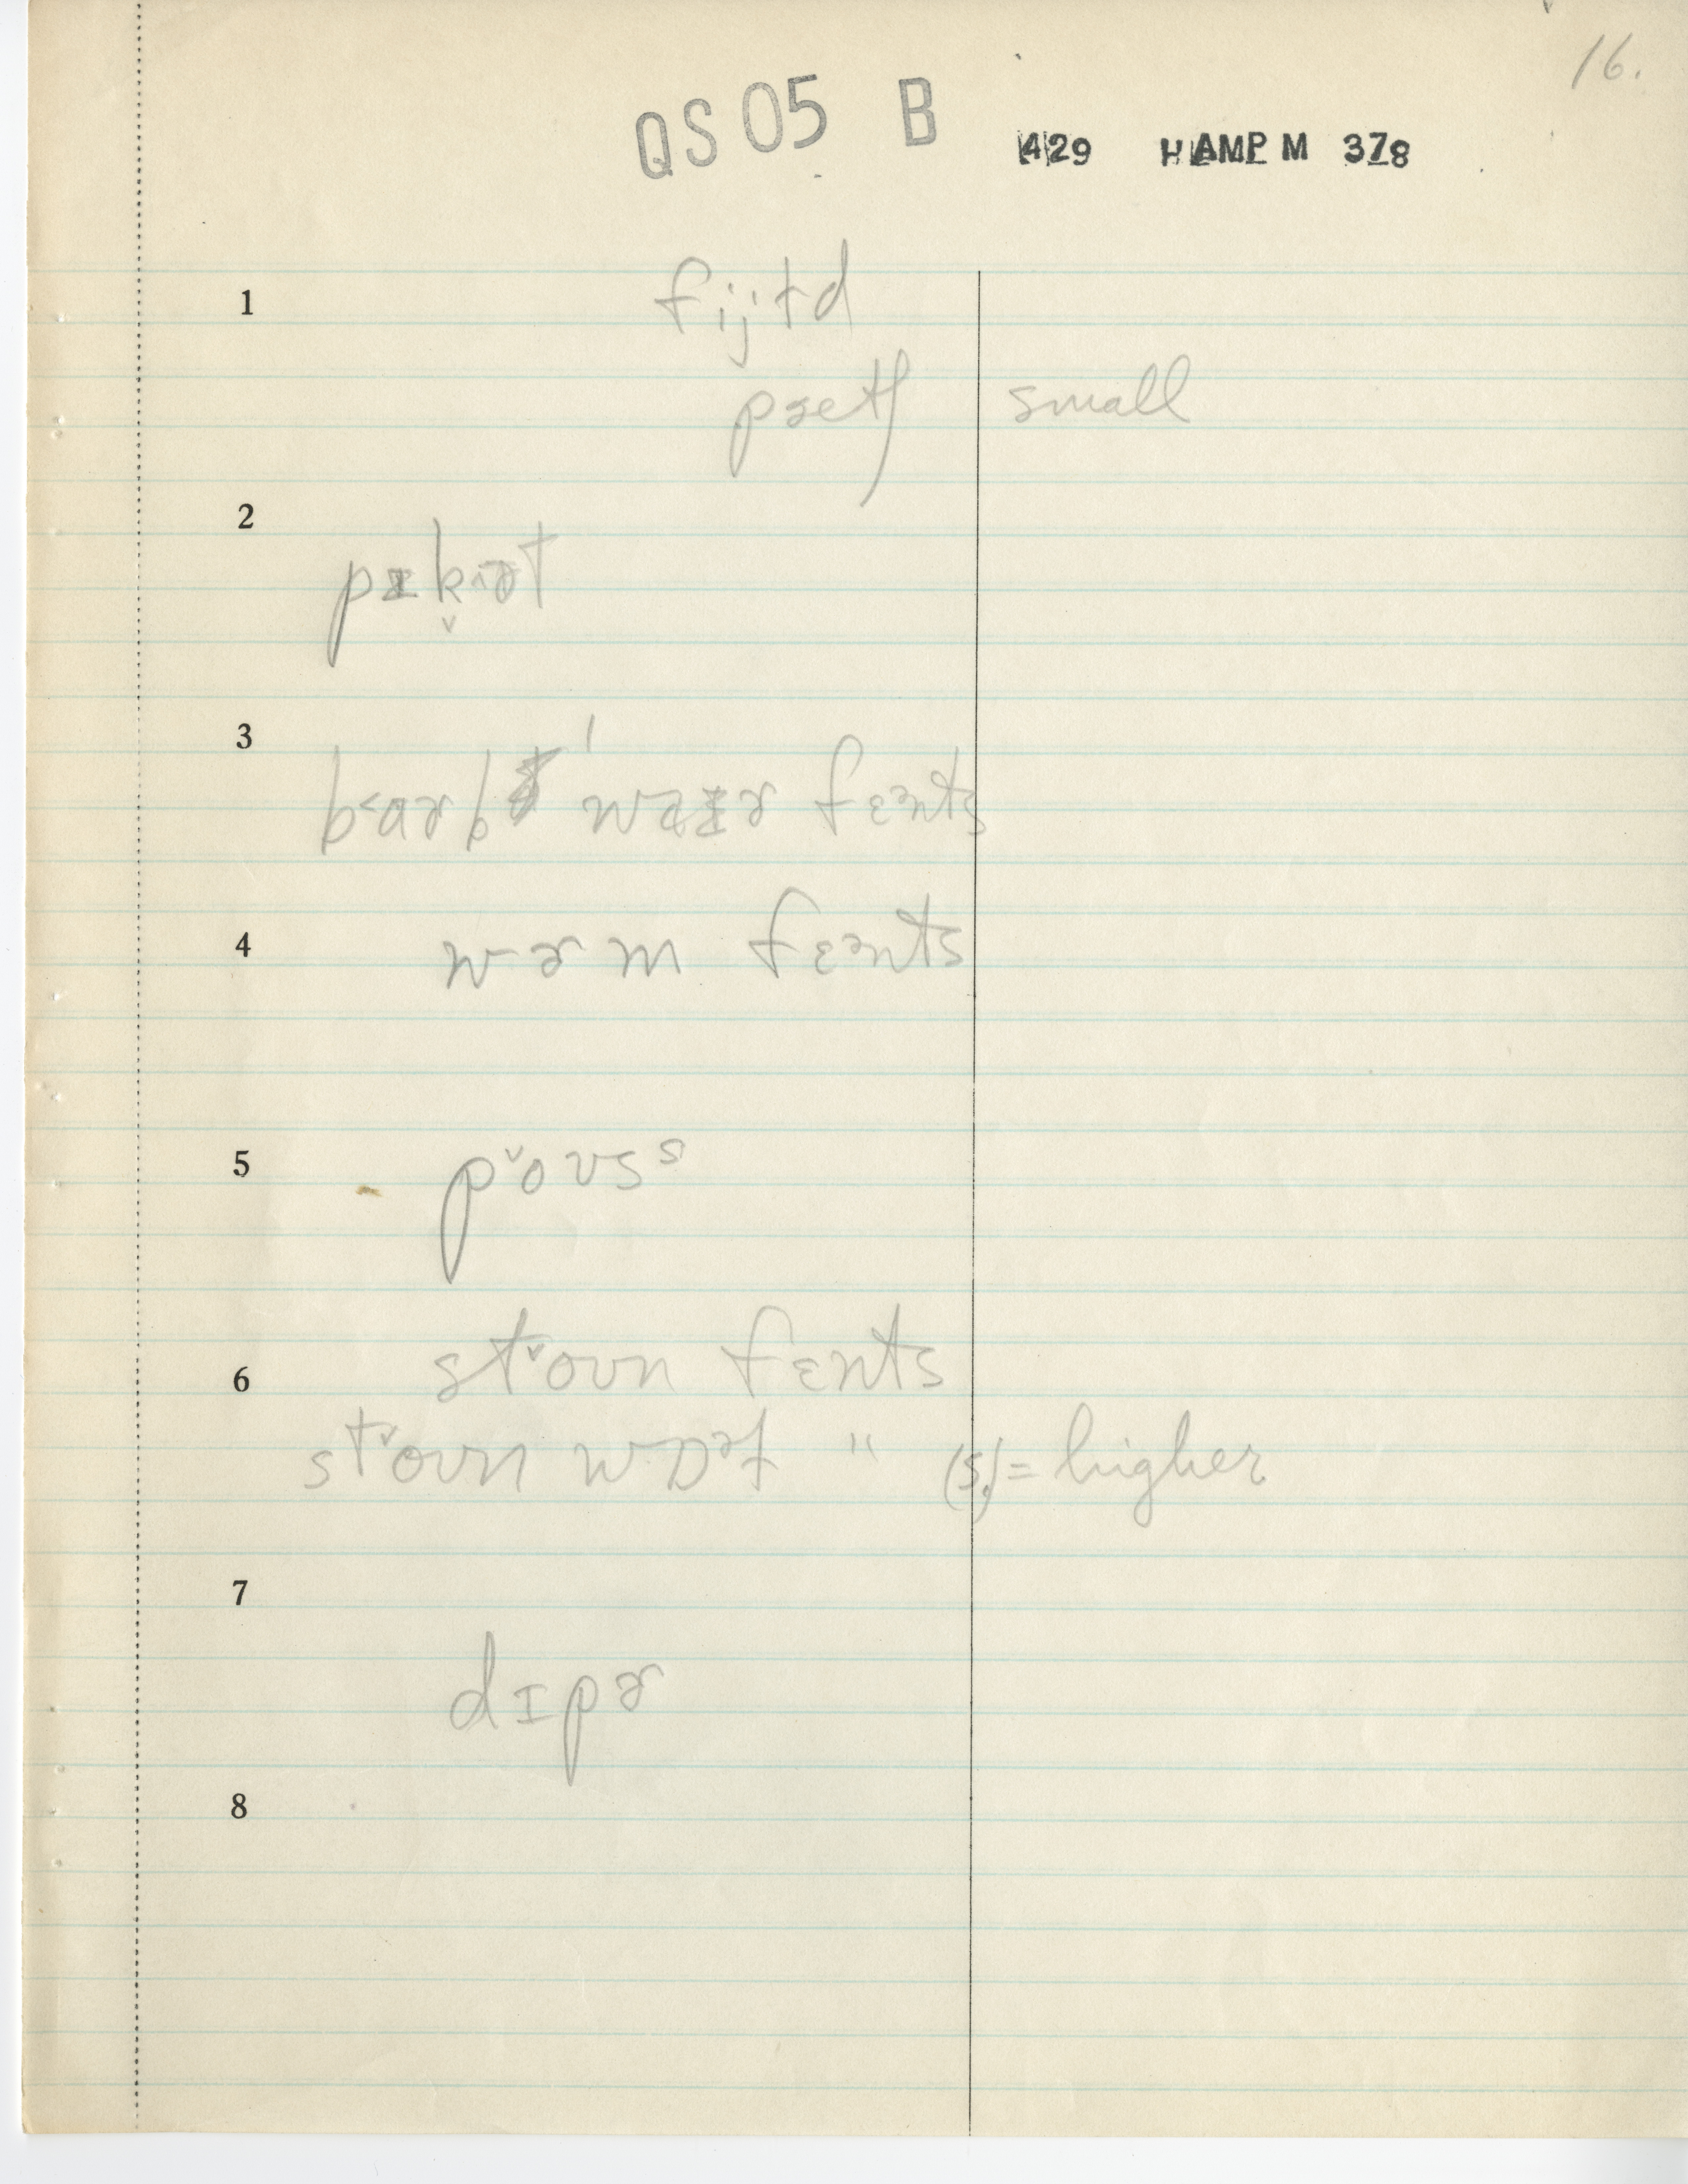 16.
QS 05 B 429 HAMP M 378
1 fijɫd
pætʃ small
2
pɪk̬ɪət
3
b˂ɑɚb waɪɚ fɛənts
4 wɚm fɛənts
5 p˅oʊsˢ
6 st˅oʊn fɛnts
st˅oʊn wɒəɫ " (s.) = higher
7
dɪpɚ
8